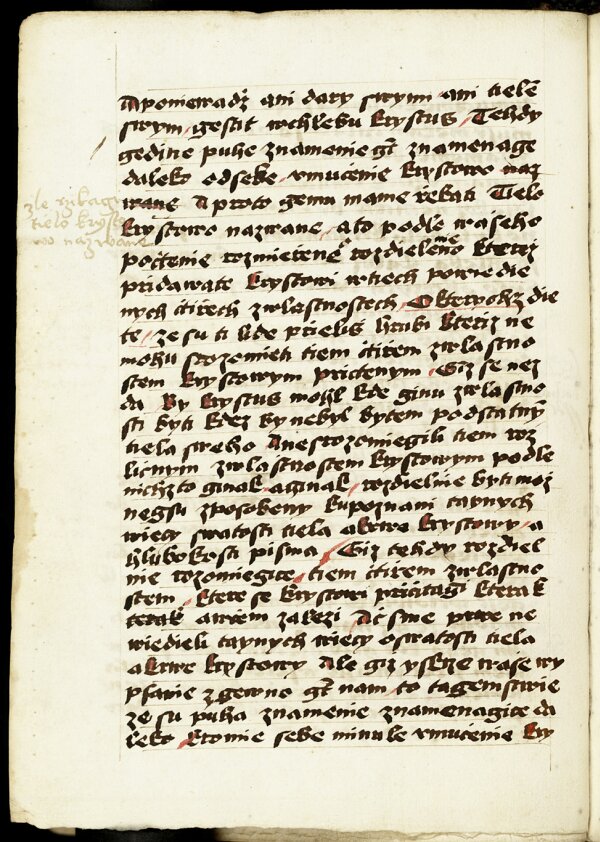 A poniewadz ani dary swymi ani tielē
swym gestit wchlebu krystus Tehdy
gedine puhe znamenie gt znamenage
daleko odsebe vmučenie krystowo naz
wane A proto gemu mame řekati Tielo
krystowo nazwane ato podle waseho
počtenie rozmietene rozdielenīe kterez
pridawate krystowi wtiech powiedie
nych čtirech zwlastnostech O kterychz die
te ze su ti lide prielis hrubi kteriz ne
mohu srozomieti tiem čtirem zwlastno
stem krystowym pričtenym Giz se nez
da By krystus mohl kde ginu zwlastno
sti byti kdez by nebyl bytem podstatnȳ
tiela sweho A nesrozomiegili tiem roz
ličnym zwlastnostem krystowym podle
nichzto ginak aginak rozdielnie byti moz
negsu zposobeny kupoznani taynych
wiecy swatosti tiela akrwe krystowy a
hlubokosti pisma Giz tehdy rozdiel
nie rozomiegice tiem čtirem zwlastno
stem ktere se krystowi pričitagi kterak
kterak awčem zalezi Ač sme prwe ne
wiedieli taynych wiecy oswatosti tiela
akrwe krystowy Ale giz yskrze wase wy
psanie zgewno gt nam to tagemstwie
ze su puha znamenie znamenagice da
leko ktomie sebe minule vmučenie kry
zle rzkagi
tielo kryst
wo nazwane